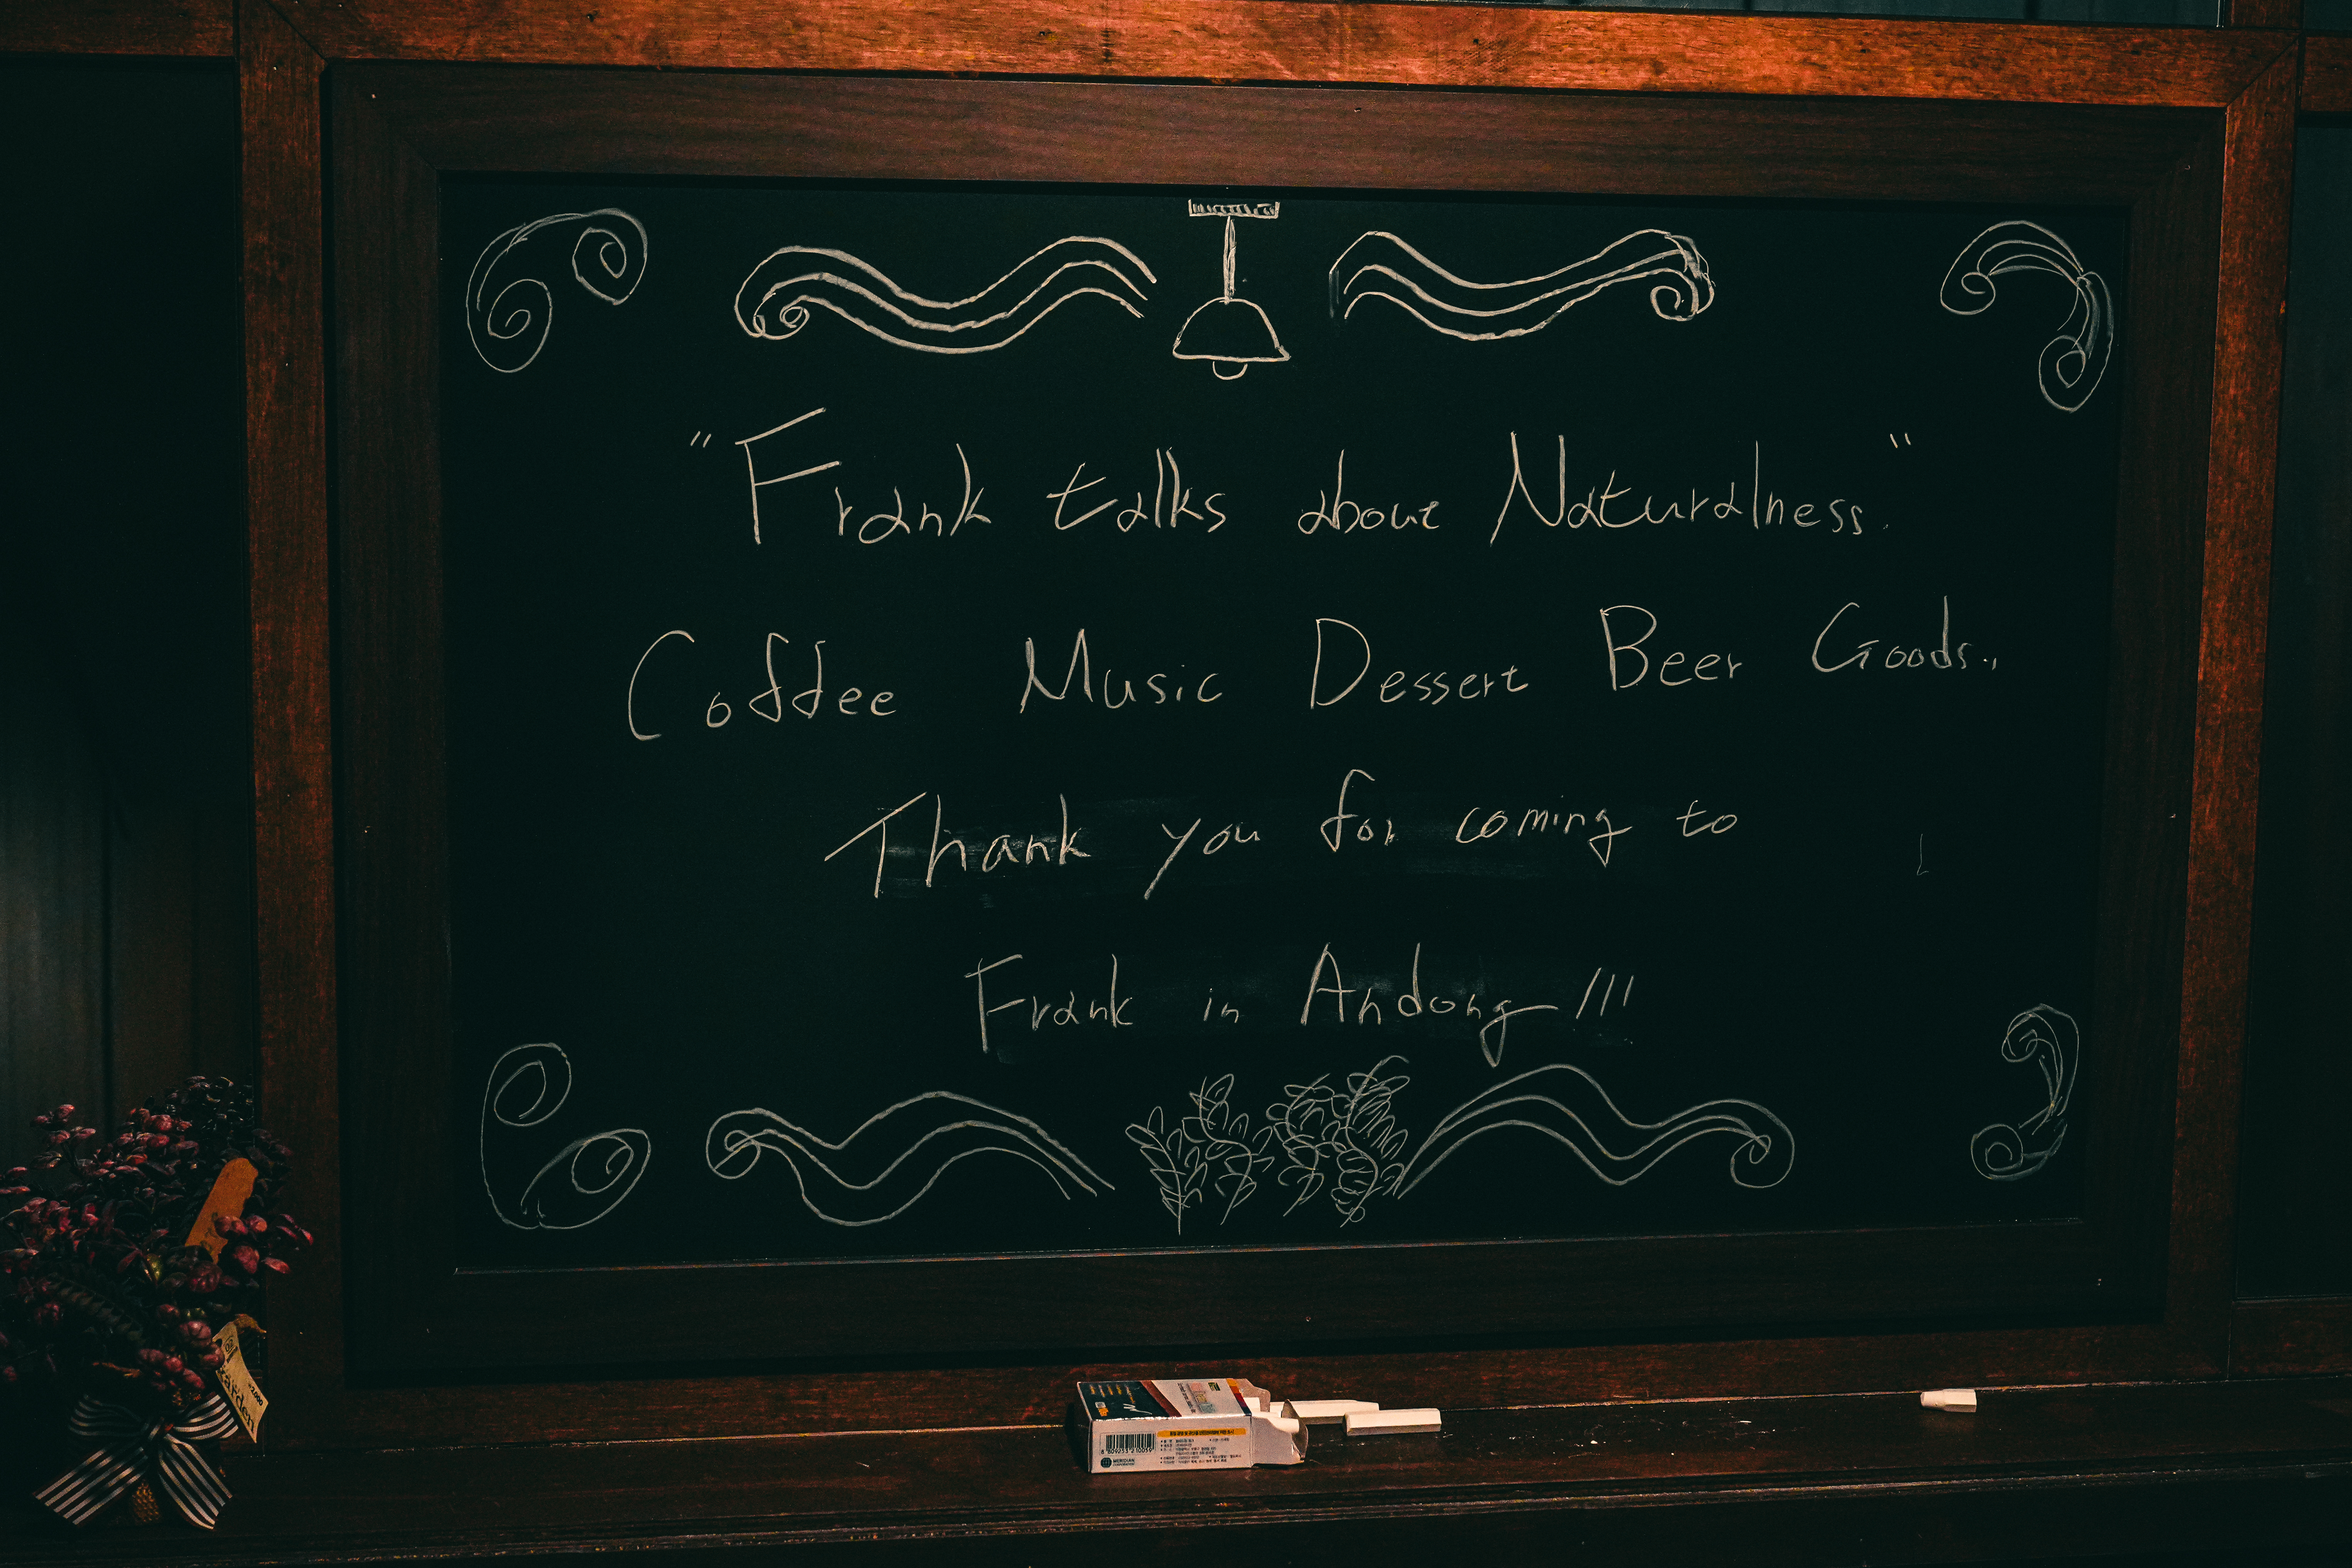 "Frank talks about Naturalness."
Coffee Music Dessert Beer Goods..
Thank you for coming to
Frank in Andong!!!
MERIDIAN